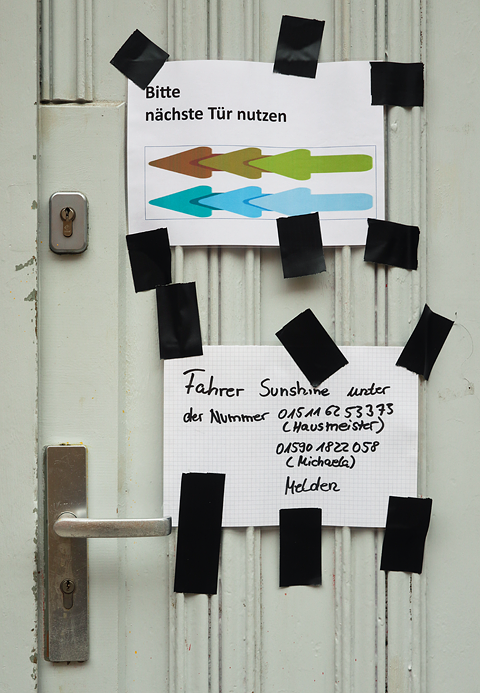 Bitte
nächste Tür nutzen
Fahrer Sunshine unter
der Nummer 01511 62 53375
(Hausmeister)
01590 1822 058
(Michaela)
Melden